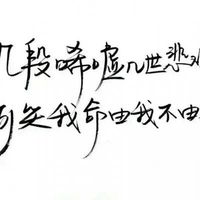 几段唏嘘几世悲
可笑我命由我不由